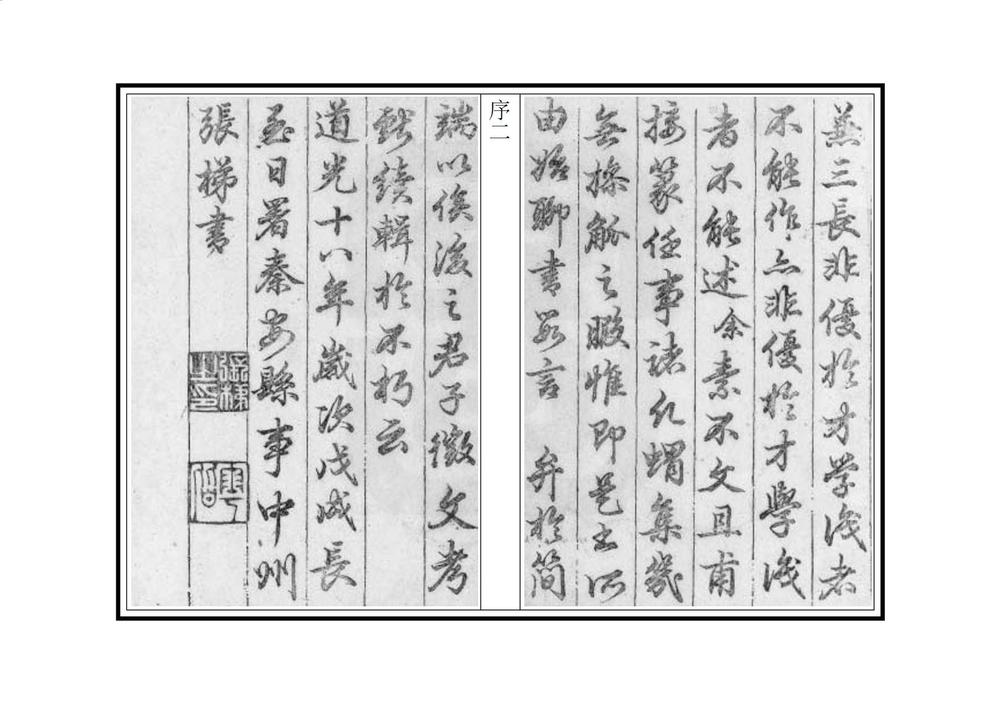 兼三長非優於才学识者
不能作亦非優於才學識
者不能述余素不文且甫
接篆任事諸凡蝟集幾
無操觚之暇惟即是書所
由始聊書數言 弁於簡
序二
端以俟後之君子徵文考
獻續輯於不朽云
道光十八年歲次戊戌長
至日署秦安縣事中州
張梯書
張梯之印